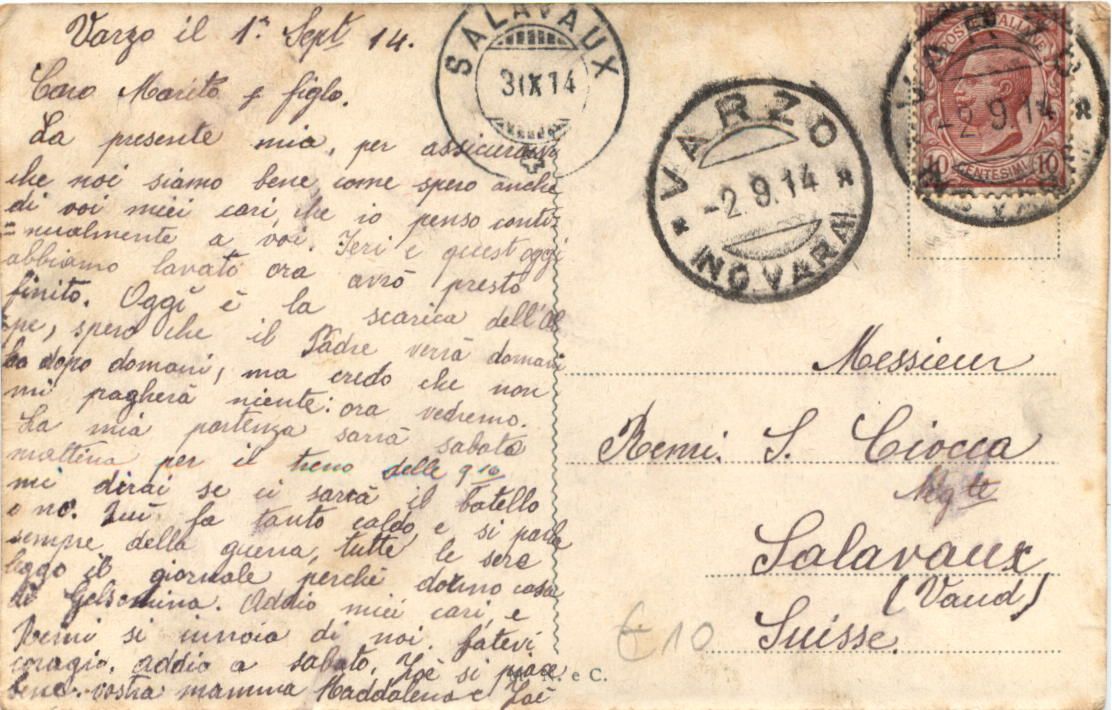 Varzo il 1° Sept 14.
Caro Marito e figlo.
La presente mia, per assicurarvi
che noi siamo bene come spero anche
di voi miei cari, che io penso conti-
=nualmente a voi. Jeri e quest oggi
abbiamo lavato ora avrò presto
finito. Oggi è la scarica dell'Al
pe, spero che il Padre verrà domani
o dopo domani, ma credo che non
mi pagherà niente: ora vedremo.
La mia partenza sarrà sabato
mattina per il treno delle 9 10
mi dirai se ci sarrà il batello
o no. Qui fa tanto caldo, e si parla
sempre della guerra, tutte le sere
leggo il giornale perchè dormo casa
di Gelsomina. Addio miei cari, e
Remi si innoia di noi. fatevi
coragio. addio a sabato, Zoè si piace
bene. vostra mamma Maddalena e Zoè
SALAVAUX
3 IX 14
VARZO
-2.9.14
(NOVARA)
POSTE ITALIANE
-2.9.14
10 CENTESIMI 10
Messieur
Remi. S. Ciocca
Ngte
Salavaux
(Vaud)
Suisse.
€10
N. e C.